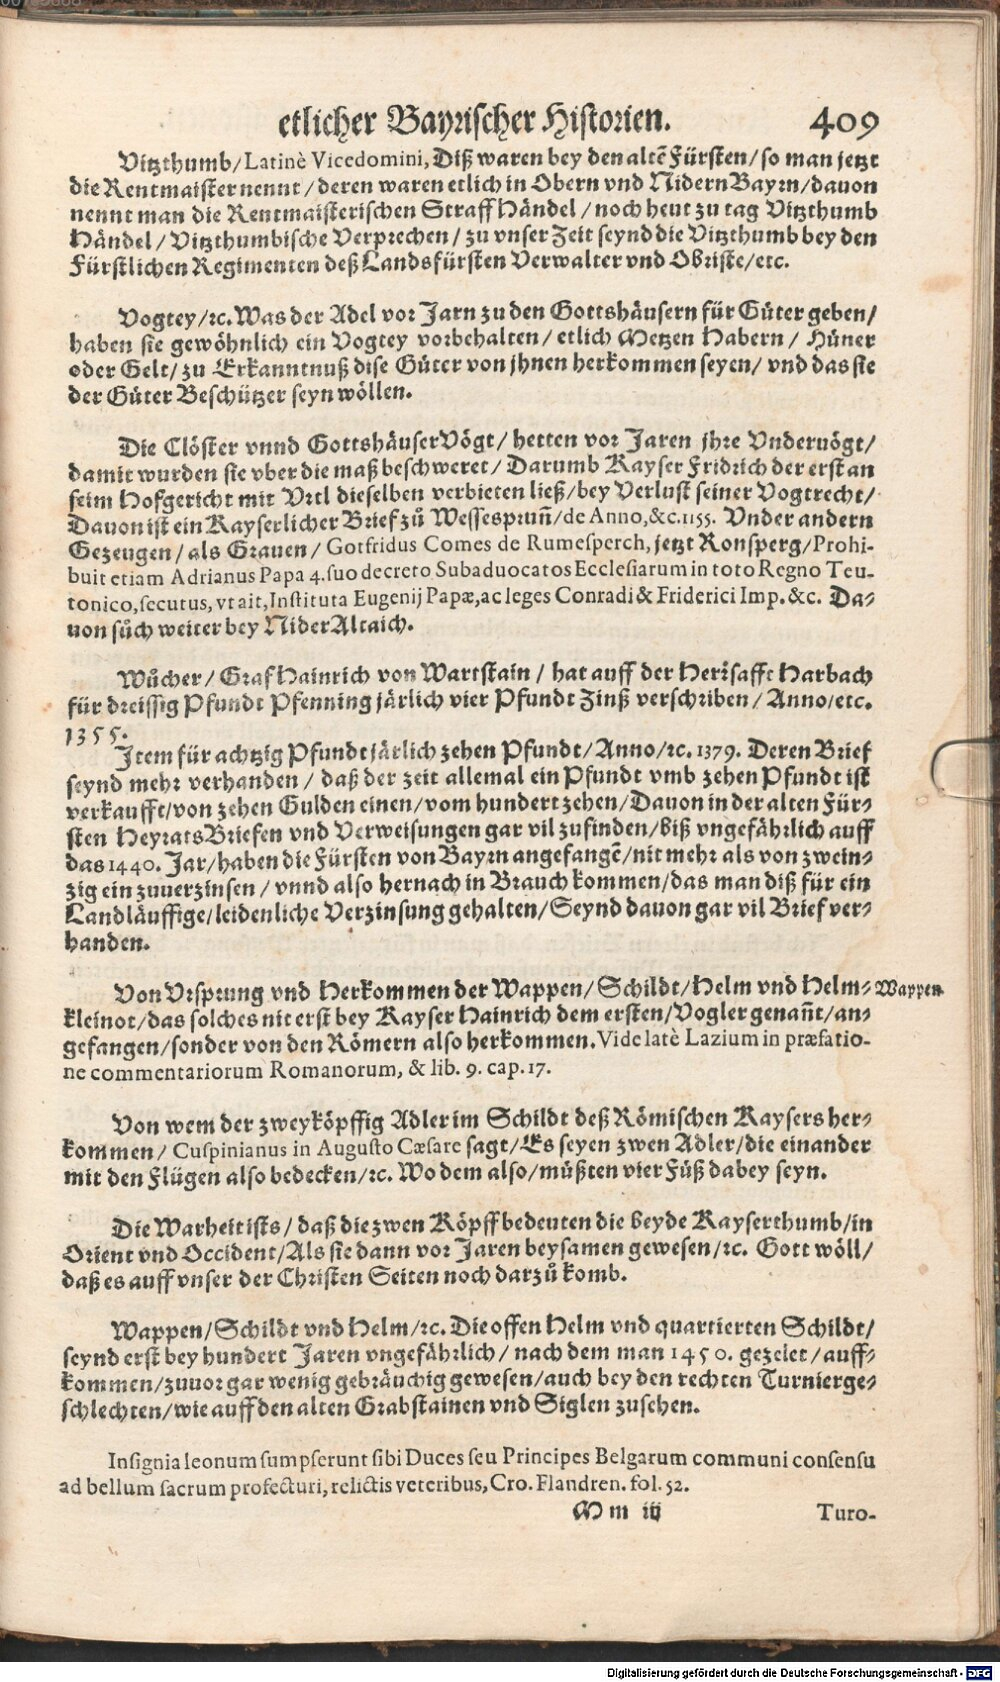 etlicher Bayrischer Historien. 409
Vitzthumb/Latinè Vicedomini, Diß waren bey den altẽ Fürsten/so man jetzt
die Rentmaister nennt/deren waren etlich in Obern vnd Nidern Bayrn/dauon
nennt man die Rentmaisterischen Straff Händel/noch heut zu tag Vitzthumb
Händel/Vitzthumbische Verprechen/zu vnser Zeit seynd die Vitzthumb bey den
Fürstlichen Regimenten deß Landsfürsten Verwalter vnd Obriste/etc.
Vogtey/ꝛc. Was der Adel vor Jarn zu den Gottshäusern für Güter geben/
haben sie gewöhnlich ein Vogtey vorbehalten/etlich Metzen Habern/Hüner
oder Gelt/zu Erkanntnuß dise Güter von jhnen herkommen seyen/vnd das sie
der Güter Beschützer seyn wöllen.
Die Clöster vnnd Gottshäuser Vögt/hetten vor Jaren jhre Vnderuögt/
damit wurden sie vber die maß beschweret/Darumb Kayser Fridrich der erst an
seim Hofgericht mit Vrtl dieselben verbieten ließ/bey Verlust seiner Vogtrecht/
Dauon ist ein Kayserlicher Brief zů Wessesprun̄/de Anno,&c.1155. Vnder andern
Gezeugen/als Grauen/Gotfridus Comes de Rumesperch, jetzt Ronsperg/Prohi-
buit etiam Adrianus Papa 4. suo decreto Subaduocatos Ecclesiarum in toto Regno Teu-
tonico, secutus, vt ait, Instituta Eugenij Papæ, ac leges Conradi & Friderici Imp. &c. Da-
uon sůch weiter bey Nider Altaich.
Wůcher/Graf Hainrich von Wartstain/hat auff der Herrsafft Harbach
für dreissig Pfundt Pfenning järlich vier Pfundt Zinß verschriben/Anno/etc.
1355.
Item für achtzig Pfundt järlich zehen Pfundt/Anno/ꝛc. 1379. Deren Brief
seynd mehr verhanden/daß der zeit allemal ein Pfundt vmb zehen Pfundt ist
verkaufft/von zehen Gulden einen/vom hundert zehen/Dauon in der alten Für-
sten Heyrats Briefen vnd Verweisungen gar vil zufinden/biß vngefährlich auff
das 1440. Jar/haben die Fürsten von Bayrn angefangẽ/nit mehr als von zwein-
zig ein zuuerzinsen/vnnd also hernach in Brauch kommen/das man diß für ein
Landläuffige/leidenliche Verzinsung gehalten/Seynd dauon gar vil Brief ver-
handen.
Von Vrsprung vnd Herkommen der Wappen/Schildt/Helm vnd Helm- Wappen
kleinot/das solches nit erst bey Kayser Hainrich dem ersten/Vogler genan̄t/an-
gefangen/sonder von den Römern also herkommen. Vide latè Lazium in præfatio-
ne commentariorum Romanorum, & lib. 9. cap. 17.
Von wem der zweyköpffig Adler im Schildt deß Römischen Kaysers her-
kommen/Cuspinianus in Augusto Cæsare sagt/Es seyen zwen Adler/die einander
mit den Flügen also bedecken/ꝛc. Wo dem also/müßten vier Füß dabey seyn.
Die Warheit ists/daß die zwen Köpff bedeuten die beyde Kayserthumb/in
Orient vnd Occident/Als sie dann vor Jaren beysamen gewesen/ꝛc. Gott wöll/
daß es auff vnser der Christen Seiten noch darzů komb.
Wappen/Schildt vnd Helm/ꝛc. Die offen Helm vnd quartierten Schildt/
seynd erst bey hundert Jaren vngefährlich/nach dem man 1450. gezelet/auff-
kommen/zuuor gar wenig gebräuchig gewesen/auch bey den rechten Turnierge-
schlechten/wie auff den alten Grabstainen vnd Siglen zusehen.
Insignia leonum sumpserunt sibi Duces seu Principes Belgarum communi consensu
ad bellum sacrum profecturi, relictis veteribus, Cro. Flandren. fol. 52.
Mm iij Turo-
Digitalisierung gefördert durch die Deutsche Forschungsgemeinschaft - DFG